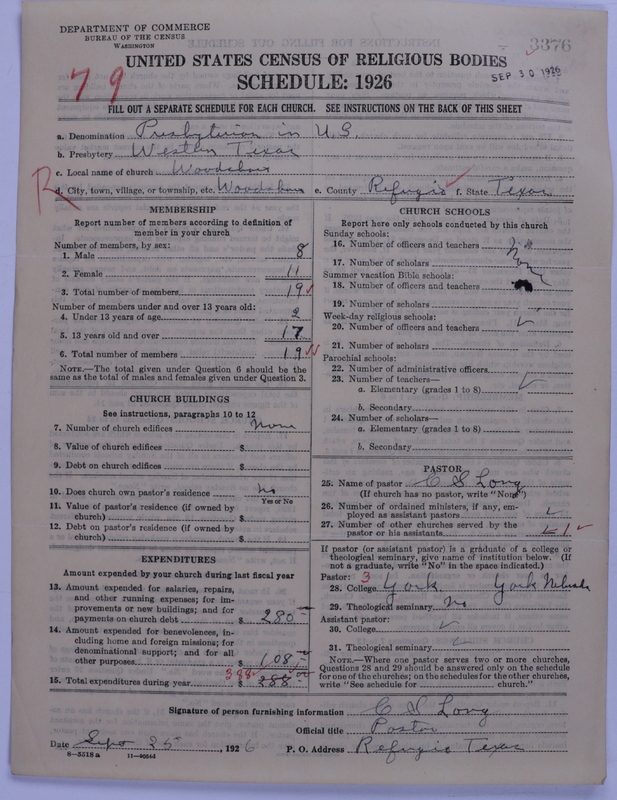 DEPARTMENT OF COMMERCE
BUREAU OF THE CENSUS
WASHINGTON
3376
UNITED STATES CENSUS OF RELIGIOUS BODIES
SEP 30 1926
79
SCHEDULE: 1926
FILL OUT A SEPARATE SCHEDULE FOR EACH CHURCH. SEE INSTRUCTIONS ON THE BACK OF THIS SHEET
a. Denomination Presbyterian in U.S.
b. Presbytery Western Texas
c. Local name of church Woodsboro
R
d. City, town, village, or township, etc. Woodsboro e. County Refugio f. State Texas
MEMBERSHIP
Report number of members according to definition of
member in your church
Number of members, by sex:
1. Male 8
2. Female 11
3. Total number of members 19
Number of members under and over 13 years old:
4. Under 13 years of age 2
5. 13 years old and over 17
6. Total number of members 19
NOTE.—The total given under Question 6 should be
same as the total of males and females given under Question 3.
CHURCH BUILDINGS
See instructions, paragraphs 10 to 12
7. Number of church edifices None
8. Value of church edifices $
9. Debt on church edifices $
10. Does church own pastor's residence No
Yes or No
11. Value of pastor's residence (if owned by
church) $
12. Debt on pastor's residence (if owned by
church) $
EXPENDITURES
Amount expended by your church during last fiscal year
13. Amount expended for salaries, repairs,
and other running expenses; for im-
provements or new buildings; and for
payments on church debt $ 280
14. Amount expended for benevolences, in-
cluding home and foreign missions; for
denominational support; and for all
other purposes $ 108
388
15. Total expenditures during year $ 288
CHURCH SCHOOLS
Report here only schools conducted by this church
Sunday schools:
16. Number of officers and teachers
17. Number of scholars
Summer vacation Bible schools:
18. Number of officers and teachers
19. Number of scholars
Week-day religious schools:
20. Number of officers and teachers
21. Number of scholars
Parochial schools:
22. Number of administrative officers
23. Number of teachers—
a. Elementary (grades 1 to 8)
b. Secondary
24. Number of scholars—
a. Elementary (grades 1 to 8)
b. Secondary
PASTOR
25. Name of pastor C S Long
(If church has no pastor, write "None")
26. Number of ordained ministers, if any, em-
ployed as assistant pastors
27. Number of other churches served by the
pastor or his assistants 1
If pastor (or assistant pastor) is a graduate of a college or
theological seminary, give name of institution below. (If
not a graduate, write "No" in the space indicated.)
Pastor: 3
28. College York York
29. Theological seminary No
Assistant pastor:
30. College
31. Theological seminary
NOTE.—Where one pastor serves two or more churches,
Questions 28 and 29 should be answered only on the schedule
for one of the churches; on the schedules for the other churches,
write "See schedule for church."
Signature of person furnishing information C S Long
Official title Pastor
Date Sept 25, 1926 P. O. Address Refugio Texas
8—5518 a